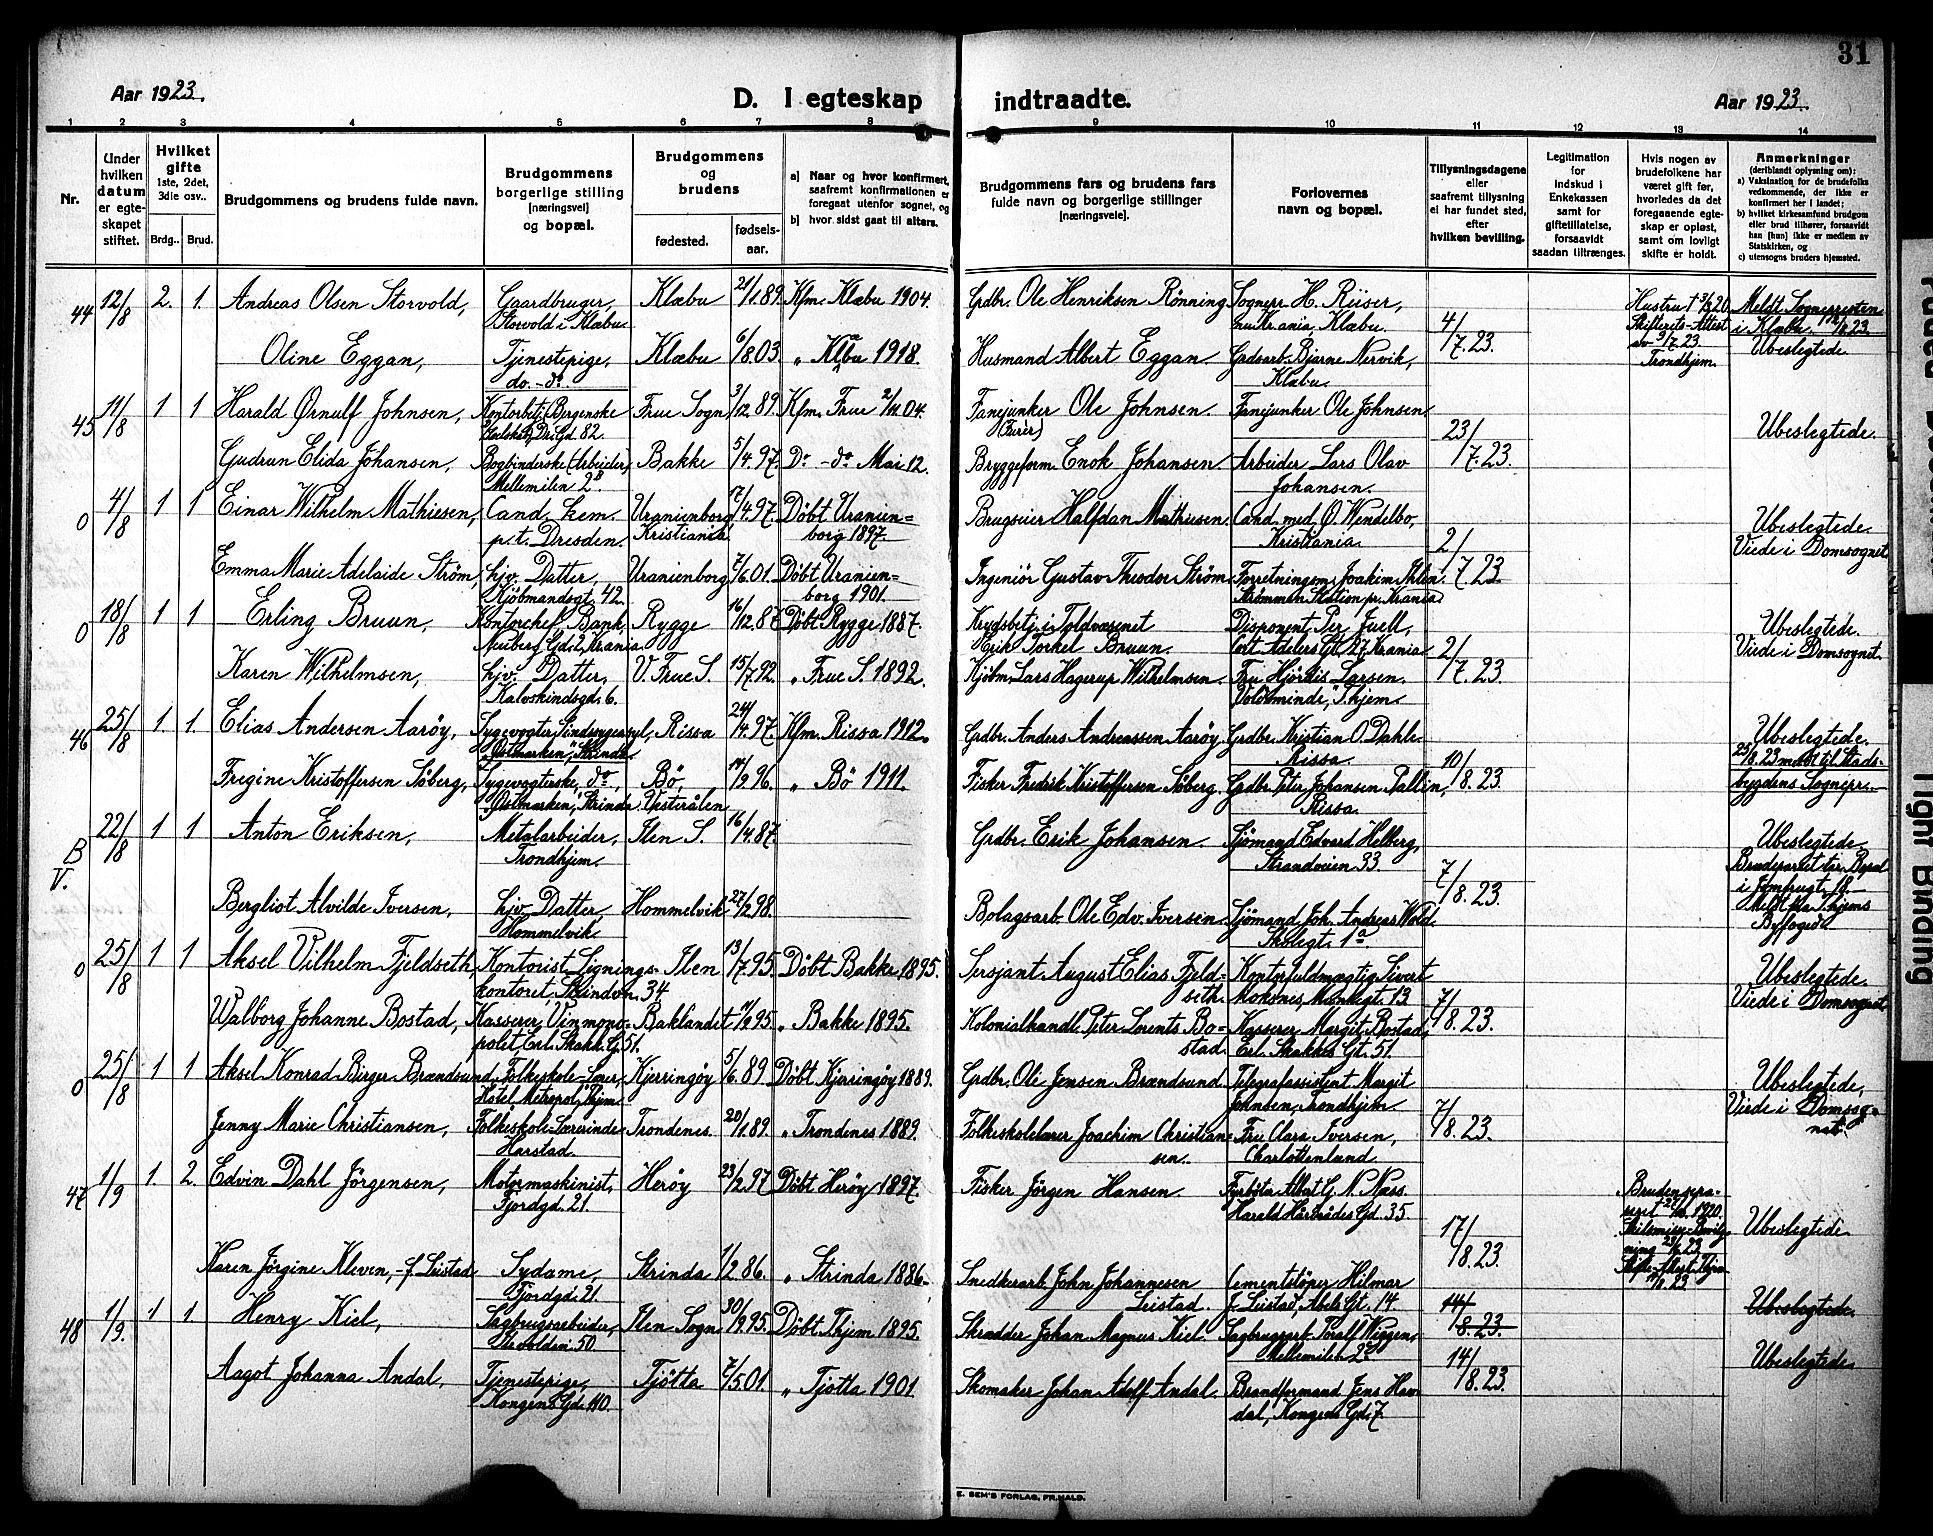 31
Aar 1923.
D. I egteskap indtraadte.
Aar 1923.
1 2 3 4 5 6 7 8 9 10 11 12 13 14
Nr.
Under hvilken datum er egte-skapet stiftet.
Hvilket gifte
1ste, 2det, 3die osv..
Brdg.. Brud.
Brudgommens og brudens fulde navn.
Brudgommens borgerlige stilling [næringsvei] og bopæl.
Brudgommens og brudens
fødested.
fødsels-aar.
a) Naar og hvor konfirmert, saafremt konfirmationen er foregaat utenfor sognet, og
b) hvor sidst gaat til alters.
Brudgommens fars og brudens fars fulde navn og borgerlige stillinger [næringsveie].
Forlovernes navn og bopæl.
Tillysningsdagene eller saafremt tillysning ei har fundet sted, efter hvilken bevilling.
Legitimation for indskud i Enkekassen samt for giftetillatelse, forsaavidt saadan tiltrænges.
Hvis nogen av brudefolkene har været gift før, hvorledes da det foregaaende egte-skap er opløst, samt om lovligt skifte er holdt.
Anmerkninger
(deriblandt oplysning om):
a) Vaksination for de brudefolks vedkommende, der ikke er konfirmert her i landet;
b) hvilket kirkesamfund brudgom eller brud tilhører, forsaavidt han [hun] ikke er medlem av Statskirken, og
c) utensogns bruders hjemsted.
44 12/8 2. 1. Andreas Olsen Storvold, Gaardbruger, Klæbu 21/1.89 Kfm. Klæbu 1904. Grdbr. Ole Henriksen Rønning Sognepr. H. Riiser, 4/7.23. Hustru † 3/3 20 Meldt Sognepresten
Storvold i Klæbu Klæbu. Skifterets-Attest i Klæbu
Oline Eggan, Tjenestepige, Klæbu 6/8.03. " Klæbu 1918. Husmand Albert Eggan Gadearb. Bjarne Nervik, Trondhjem. Ubeslegtede
do.-do Klæbu.
45 11/8 1 1 Harald Ørnulf Johnsen, Kontorbetj. Bergenske Frue Sogn 3/12.89. Kfm. Frue 2/10 04. Fanejunker Ole Johnsen. Fanejunker Ole Johnsen. 23/7.23. Ubeslegtede.
Gd 82. (Furér)
Gudrun Elida Johansen, Bogbinderske (Arbeider) Bakke 5/4.97. Do -do Mai 12. Bryggeform. Enok Johansen Arbeider Lars Olav
Mellemilen 2B Johansen.
0 4/8 1 1 Einar Wilhelm Mathiesen, Cand. kem. Uranienborg 17/4.97. Døbt Uranien= Brugseier Halfdan Mathiesen Cand. med. Ø. Wendelbo, 2/7 23 Ubeslegtede.
p.t. Dresden. Kristiania. borg 1897. Kristiania. Viede i Domsognet
Emma Marie Adelaide Strøm, hjv. Datter, Uranienborg 7/6.01. Døbt Uranien= Ingeniør Gustav Theodor Strøm Forretningsm. Joakim Ihlen
Kjøbmandsgt. 42. borg 1901. Strømmen Station pr. Krania
0 18/8 1 1 Erling Bruun, Kontorchef, Bank, Rygge 16/12.87 Døbt Rygge 1887. Krydsbetj. i Toldvæsenet Disponent Per Juell, 2/7 23. Ubeslegtede.
Krania Torkel Bruun. Cort Adelers Gt. 27 Krania Viede i Domsognet
Karen Wilhelmsen, hjv. Datter, V. Frue S. 15/7.92. " Frue S. 1892. Kjøbm. Lars Hagerup Wilhelmsen. Fru Hjørdis Larsen.
Kalvskindsgd. 6. Voldsminde, T.hjem
46 25/8 1 1. Elias Andersen Aarøy, Sygevogter, Sindssygeasyl, Rissa 24/4.97. Kfm. Rissa 1912. Grdbr. Anders Andreassen Aarøy. Grdbr. Kristian O. Dahle 10/8.23. Ubeslegtede.
"Østmarken", Strinda Rissa. 25/8.23 meldt til Stads-
Fregine Kristoffersen Søberg, Sygevogterske, do, Bø, 14/9.96. " Bø 1911. Fisker Fredrik Kristoffersen Søberg. Grdbr. Peter Johansen Pallin, bygdens Sognepr.
"Østmarken", Strinda Vesterålen Rissa.
B V. 22/8 1 1 Anton Eriksen, Metalarbeider, Ilen S. 16/4.87. Grdbr. Erik Johansen Sjømand Edvard Helberg, 7/8.23. Ubeslegtede
Trondhjem. Strandveien 33.
i Jomfrugt. 18.
Bergliot Alvilde Iversen, hjv. Datter, Hommelvik 27/2.98. Bolagsarb. Ole Edv. Iversen. Sjømand Joh. Andreas Wold Meldt
Hommelvik Skolegt. 1a Byfoged
0 25/8 1 1 Aksel Vilhelm Fjeldseth, Kontorist, Lignings- Ilen 13/7.95. Døbt Bakke 1895. Sersjant August Elias Fjeld- Kontorfuldmægtig Sivert 7/8.23. Ubeslegtede.
kontoret, Strindvn. 34 seth. Moksnes, Munkegt. 13 Viede i Domsognet
Walborg Johanne Bostad, Kasserer, Vinmono- Baklandet 14/9 95. " Bakke 1895. Kolonialhandl. Peter Lorents Bo= Kasserer Margit Bostad,
polet, Erl. Skakk. G. 51. stad. Erl. Skakkes Gt. 51.
0 25/8 1 1 Aksel Konrad Birger Brændsund, Folkeskole-Lærer, Kjerringøy 5/6.89 Døbt Kjerringøy 1889. Grdbr. Ole Jensen Brændsund Telegrafassistent Margit 7/8.23. Ubeslegtede,
Hotel Metropol, Thjem. Johnsen, Trondhjem. Viede i Domsog=
Jenny Marie Christiansen, Folkeskole-Lærerinde Trondenes. 20/1.89. " Trondenes 1889. Folkeskolelærer Joachim Christian- Fru Clara Iversen, net.
Harstad. sen.. Charlottenlund.
47 1/9 1. 2. Edvin Dahl Jørgensen, Motormaskinist, Herøy 23/2.97 Døbt Herøy 1897. Fisker Jørgen Hansen Fyrbøter Albert G. N. Næss. 17/8.23. Ubeslegtede
Fjordgd. 21. Harald Hårfagres Gd. 35.
Karen Jørgine Kleven, -f. Leistad Sydame, Strinda 1/2 86. " Strinda 1886. Snedkerarb. John Johannesen Cementstøper Hilmar
Fjordgd. 21. Leistad. J. Leistad, Abels Gt. 14
48 1/9. 1 1. Henry Kiel, Sagbrugsarbeider, Ilen Sogn 30/9.95. Døbt Thjem 1895. Skrædder Johan Magnus Kiel Sagbrugsarb. Toralf Wiggen, 14/8.23. Ubeslegtede
50 Mellemilen
Aagot Johanna Andal, Tjenestepige, Tjøtta 7/5.01. " Tjøtta 1901. Skomaker Johan Adolf Andal. Brandformand Jens Hav 14/8.23. Ubeslegtede
Kongens Gd. 110. dal, Kongens Gd. 7.
E. SEM'S FORLAG, FR.HALD.
Tight Binding